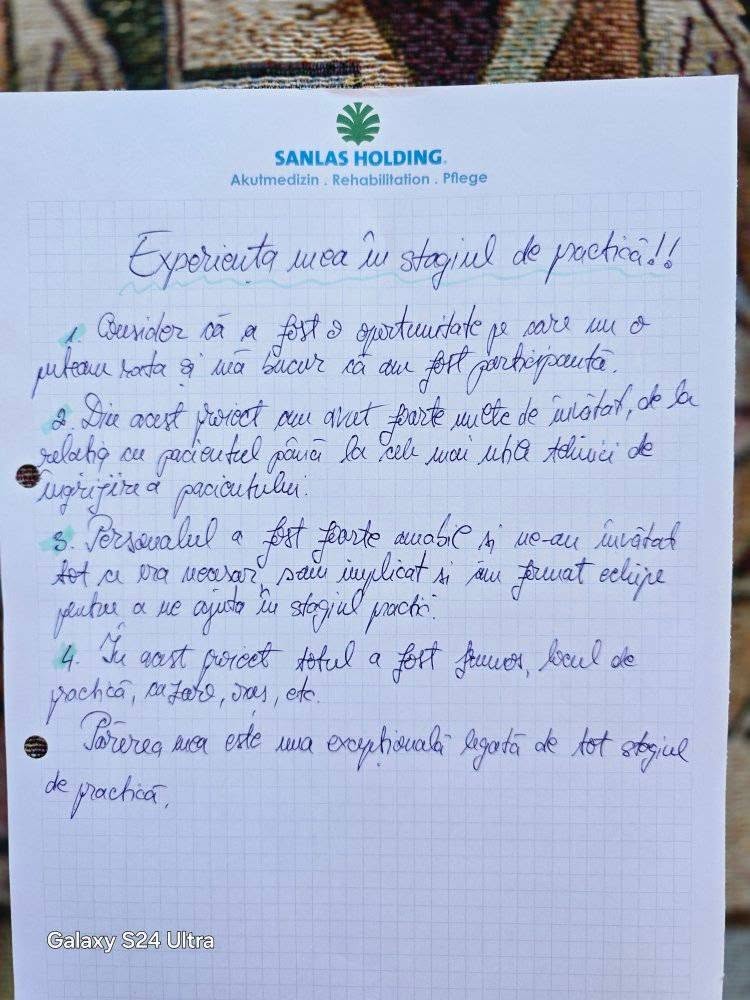 SANLAS HOLDING
Akutmedizin . Rehabilitation . Pflege
Experiența mea în stagiul de practică!!
1. Consider că a fost o oportunitate pe care nu o
puteam rata și mă bucur că am fost participantă.
2. Din acest proiect am avut foarte multe de învătat, de la
relația cu pacientul până la cele mai utile tehnici de
îngrijire a pacientului.
3. Personalul a fost foarte amabil si ne-au învătat
tot ce era necesar, s-au implicat si au format echipe
pentru a ne ajuta în stagiul practic.
4. În acest proiect totul a fost frumos, locul de
practică, cazare, oraș, etc.
Părerea mea este una excepțională legată de tot stagiul
de practică.
Galaxy S24 Ultra